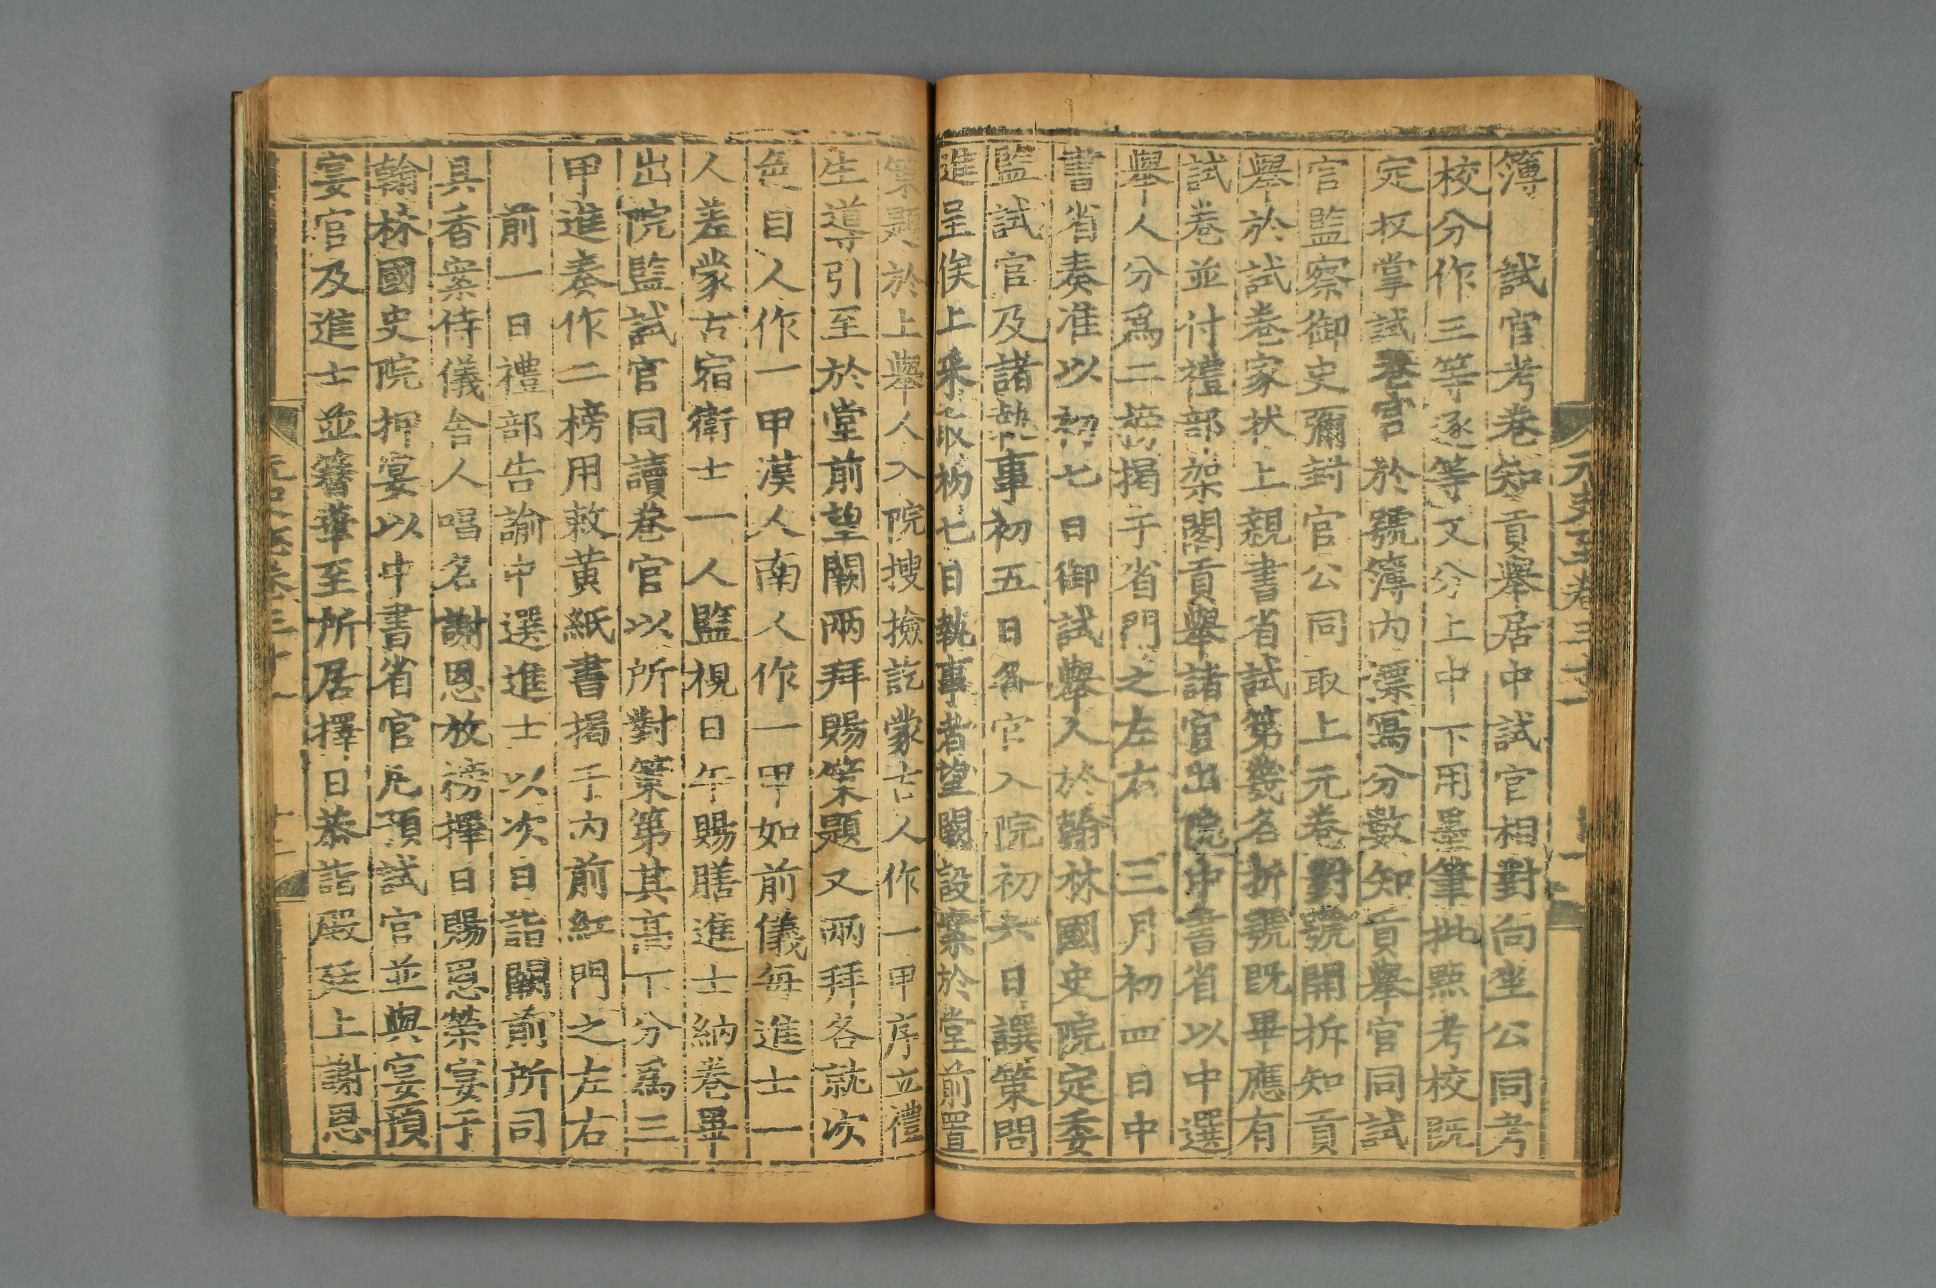 簿　試官考卷知貢舉居中試官相對向坐公同考
校分作三等逐等又分上中下用墨筆批點考校既
定收掌試卷官於號簿內漂寫分數知貢舉官同試
官監察御史彌封官公同取上元卷對號開拆知貢
舉於試卷家狀上親書省試第幾名拆號既畢應有
試卷並付禮部架閣貢舉諸官出院中書省以中選
舉人分爲二榜揭于省門之左右　三月初四日中
書省奏准以初七日御試舉人於翰林國史院定委
監試官及諸執事初五日各官入院初六日譔策問
進呈俟上采取初七日執事者望闕設案於堂前置
策題於上舉人入院搜撿訖蒙古人作一甲序立禮
生導引至於堂前望闕兩拜賜策題又兩拜各就次
色目人作一甲漢人南人作一甲如前儀每進士一
人差蒙古宿衛士一人監視日午賜膳進士納卷畢
出院監試官同讀卷官以所對策第其高下分爲三
甲進奏作二榜用敕黃紙書揭于內前紅門之左右
前一日禮部告諭中選進士以次日詣闕前所司
具香案侍儀舍人唱名謝恩放榜擇日賜恩榮宴于
翰林國史院押宴以中書省官凡預試官並與宴預
宴官及進士並簪華至所居擇日恭詣殿廷上謝恩